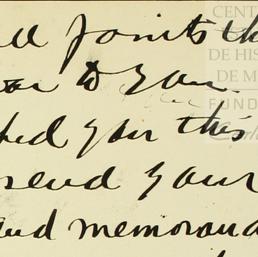 all points th
or to you.
ked you this
send your
and memorand
CENT
DE HIS
DE M
FUND